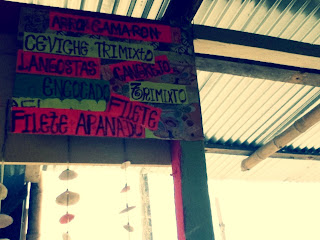 ARROZ CAMARON
CEVICHE TRIMIXTO
LANGOSTAS CANGREJO
ENCOCADO TRIMIXTO
FILETE
FILETE APANADO